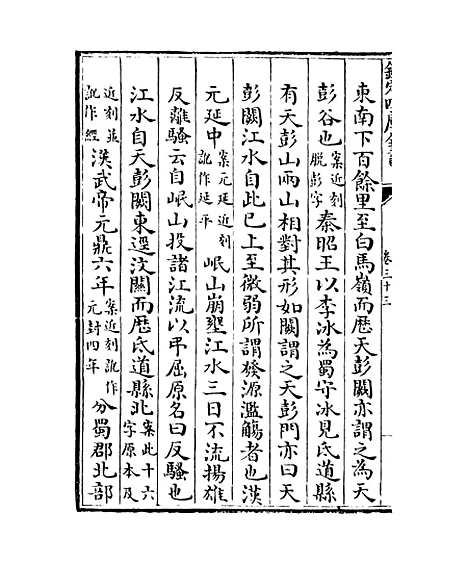 東南下百餘里至白馬嶺而歴天彭闕亦謂之為天
彭谷也案近刻脱彭字秦昭王以李冰為蜀守冰見氐道縣
有天彭山兩山相對其形如闕謂之天彭門亦曰天
彭闕江水自此已上至微弱所謂發源濫觴者也漢
元延中案元延近刻訛作延平岷山崩壅江水三日不流揚雄
反離騷云自岷山投諸江流以弔屈原名曰反騷也
江水自天彭闕東逕汶關而歴氐道縣北案此十六字原本及
近刻並訛作經漢武帝元鼎六年案近刻訛作元封四年分蜀郡北部
卷三十三